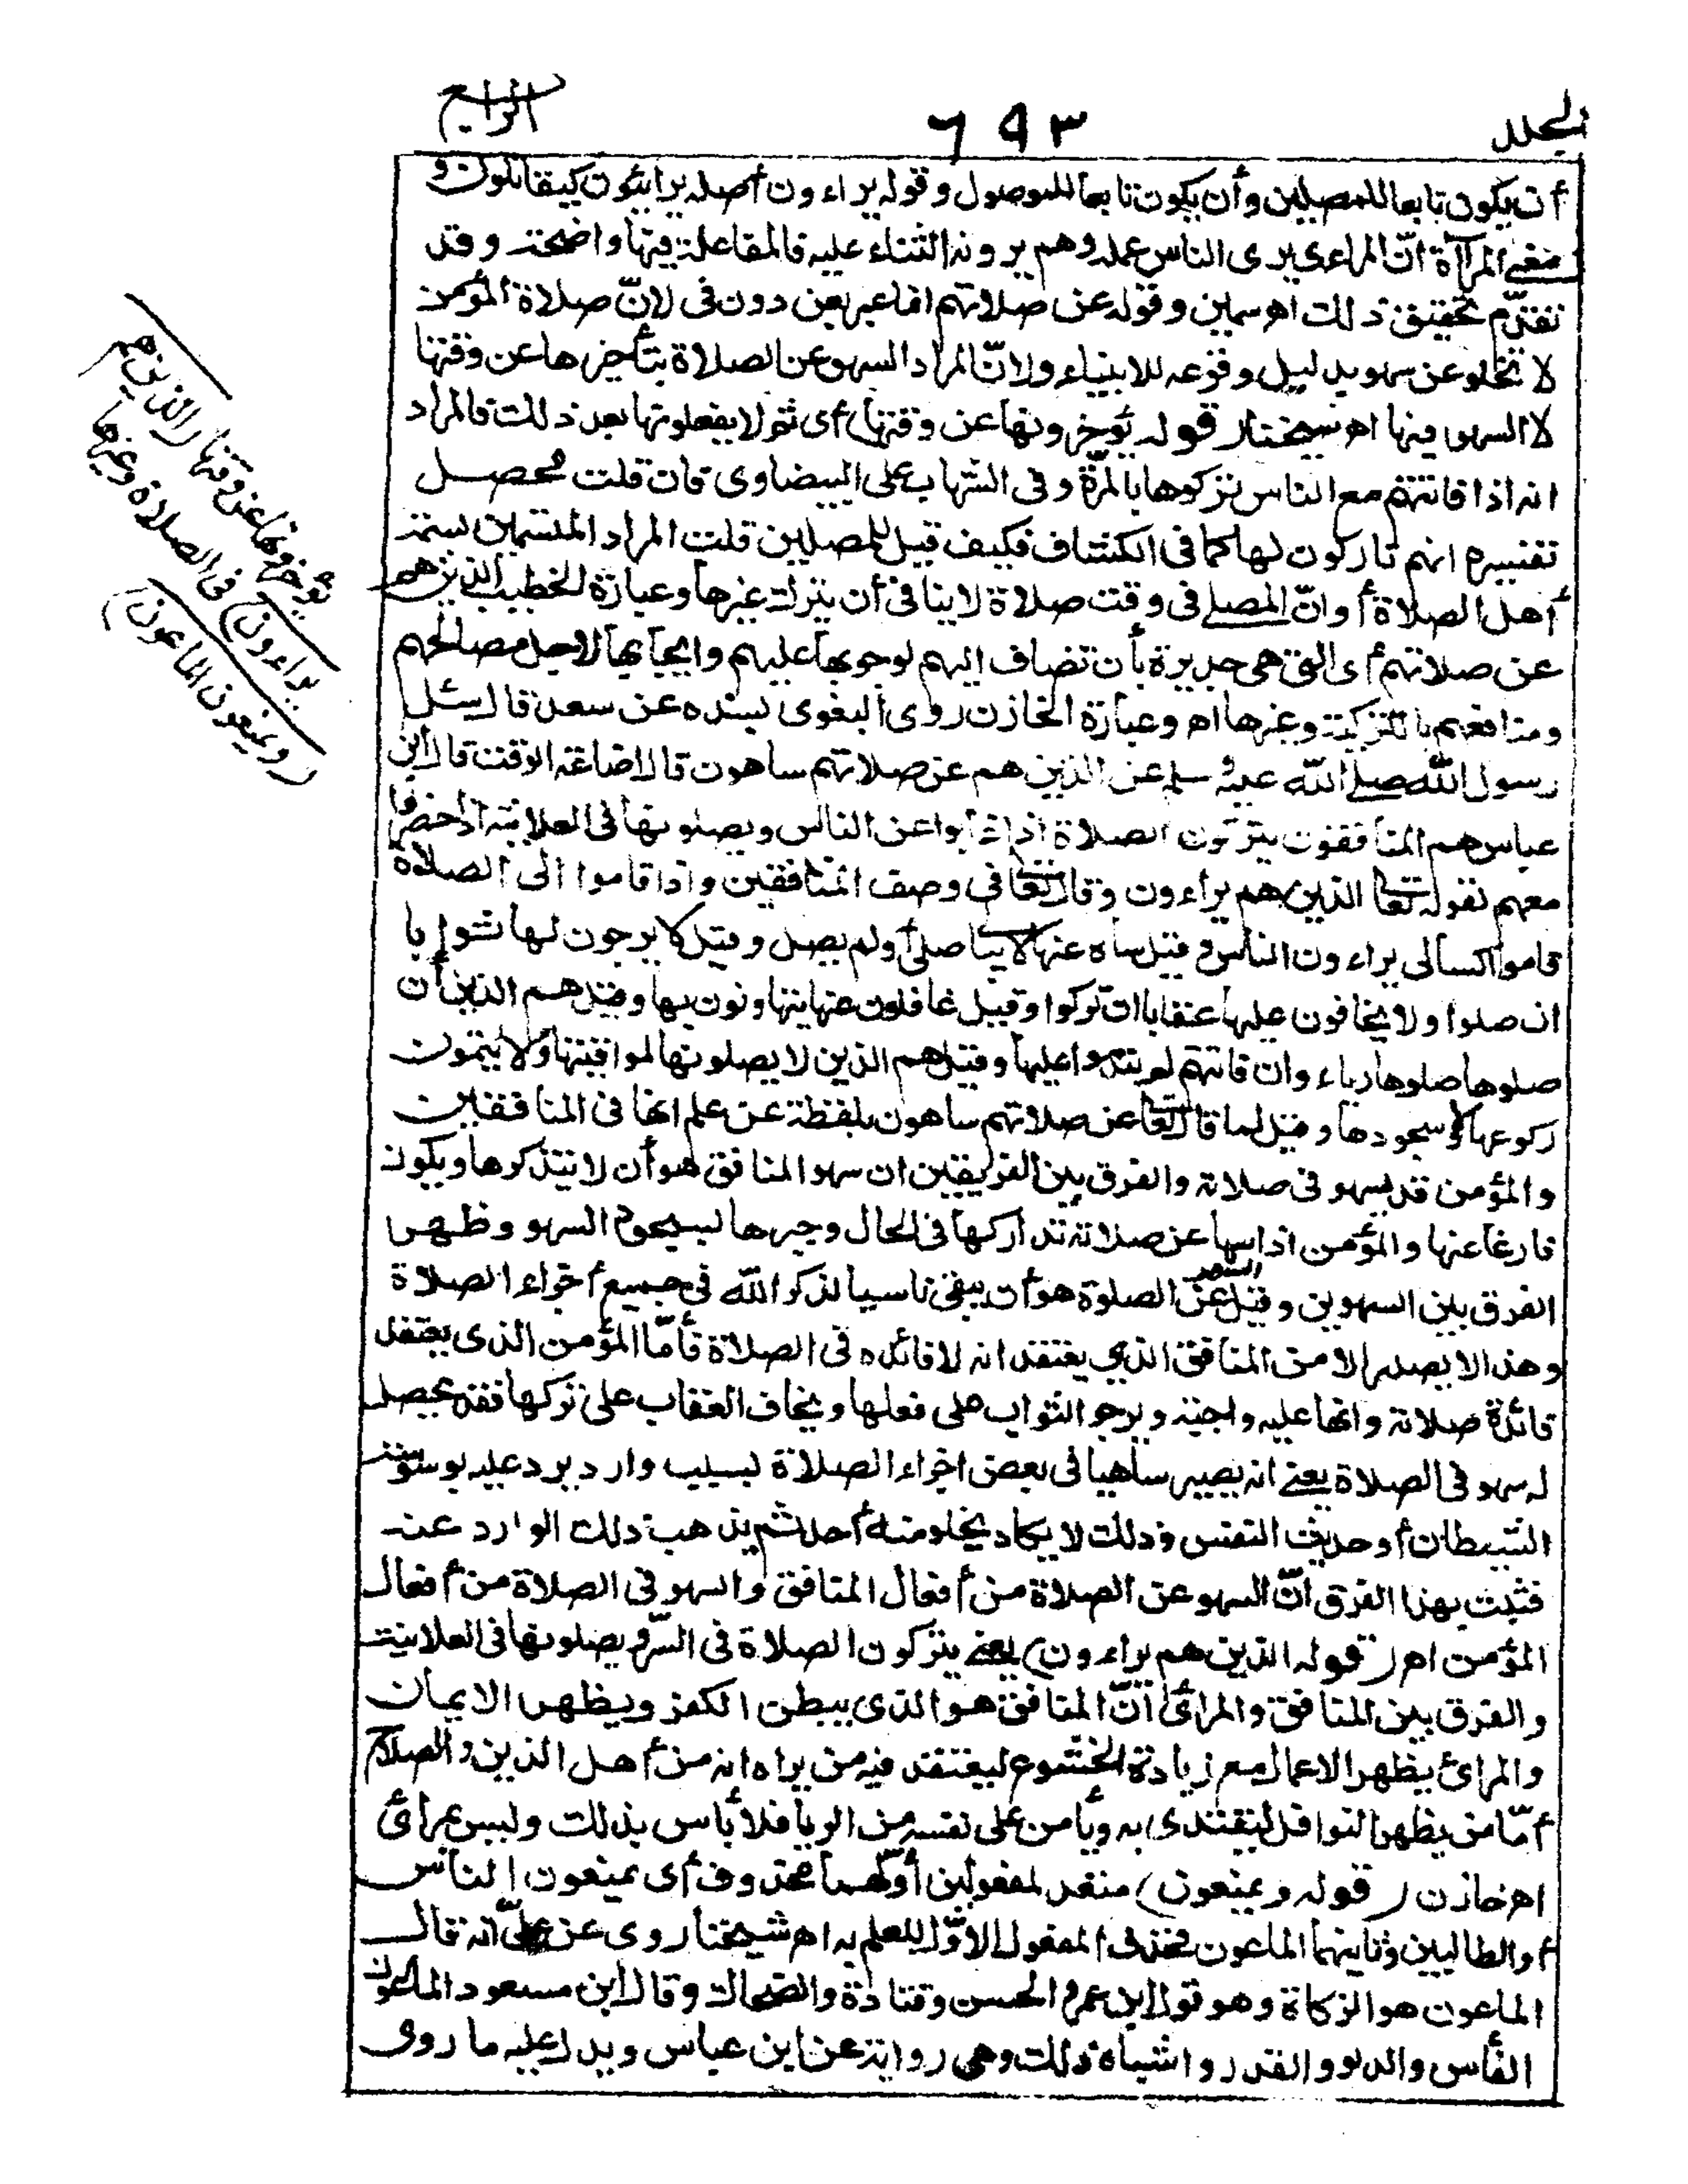 المجلد
٦٩٣
الرابع
أن يكون تابعا للمصلين وأن يكون تابعا للموصول وقوله يراءون أصله يرائيون كيقاتلون و
معنى المراآة انّ المراءى يرى الناس عمله وهم يرونه الثناء عليه فالمفاعلة فيها واضحة وقد
تقدّم تحقيق ذلك اه سمين وقوله عن صلاتهم انما عبر بعن دون فى لانّ صلاة المؤمن
لا تخلو عن سهو بدليل وقوعه للانبياء ولانّ المراد السهو عن الصلاة بتأخيرها عن وقتها
لا السهو فيها اه شيخنا (قوله يؤخرونها عن وقتها) أى ثم لا يفعلونها بعد ذلك فالمراد
انه اذا فاتتهم مع الناس تركوها بالمرّة وفى الشهاب على البيضاوى فان قلت محصل
تفسيره انهم تاركون لها كما فى الكشاف فكيف قيل للمصلين قلت المراد المتسمين بسمة
أهل الصلاة أو انّ المصلى فى وقت صلاة لا ينافى أن يترك غيرها وعبارة الخطيب الذين هم
عن صلاتهم أى التى هى جديرة بأن تضاف اليهم لوجوبها عليهم وايجابها لاجل مصالحهم
ومنافعهم بالتزكية وغيرها اه وعبارة الخازن روى البغوى بسنده عن سعد قال سئل
رسول الله صلى الله عليه وسلم عن الذين هم عن صلاتهم ساهون قال اضاعة الوقت قال ابن
عباس هم المنافقون يتركون الصلاة اذا غابوا عن الناس ويصلونها فى العلانية اذا حضروا
معهم لقوله تعالى الذين هم يراءون وقال تعالى فى وصف المنافقين واذا قاموا الى الصلاة
قاموا كسالى يراءون الناس وقيل ساه عنها لا يبالى صلى أو لم يصل وقيل لا يرجون لها ثوابا
ان صلوا ولا يخافون عليها عقابا ان تركوا وقيل غافلون عنها يتهاونون بها وقيل هم الذين ان
صلوها صلوها رياء وان فاتتهم لم يندموا عليها وقيل هم الذين لا يصلونها لمواقيتها ولا يتمون
ركوعها ولا سجودها وقيل لما قال تعالى عن صلاتهم ساهون بلفظة عن علم انها فى المنافقين
والمؤمن قد يسهو فى صلاته والفرق بين الفريقين ان سهو المنافق هو أن لا يتذكرها ويكون
فارغا عنها والمؤمن اذا سها عن صلاته تداركها فى الحال وجبرها بسجود السهو وظهر
الفرق بين السهوين وقيل السهو عن الصلوة هو أن يبقى ناسيا لذكر الله فى جميع أجزاء الصلاة
وهذا لا يصدر الا من المنافق الذى يعتقد انه لا فائدة فى الصلاة فأمّا المؤمن الذى يعتقد
فائدة صلاته وانها عليه واجبة ويرجو الثواب على فعلها ويخاف العقاب على تركها فقد يحصل
له سهو فى الصلاة يعنى انه يصير ساهيا فى بعض اجزاء الصلاة بسبب وارد يرد عليه بوسوسة
الشيطان أو حديث النفس وذلك لا يكاد يخلو منه أحد ثم يذهب ذلك الوارد عنه
فثبت بهذا الفرق انّ السهو عن الصلاة من أفعال المنافق والسهو فى الصلاة من أفعال
المؤمن اه (قوله الذين هم يراءون) يعنى يتركون الصلاة فى السّر ويصلونها فى العلانية
والفرق بين المنافق والمرائى انّ المنافق هو الذى يبطن الكفر ويظهر الايمان
والمرائى يظهر الاعمال مع زيادة الخشوع ليعتقد فيه من يراه انه من أهل الدين والصلاح
أمّا من يظهر النوافل ليقتدى به ويأمن على نفسه من الريا فلا بأس بذلك وليس بمرائى
اه خازن (قوله ويمنعون) متعد لمفعولين أوّلهما محذوف أى يمنعون الناس
أو الطالبين وثانيهما الماعون فحذف المفعول الاوّل للعلم به اه شيخنا روى عن علىّ أنه قال
الماعون هو الزكاة وهو قول ابن عمر والحسن وقتادة والضحاك وقال ابن مسعود الماعون
الفأس والدلو والقدر واشباه ذلك وهى رواية عن ابن عباس ويدل عليه ما روى
يؤخرونها عن وقتها (الذين هم
يراءون) فى الصلاة وغيرها
(ويمنعون الماعون)